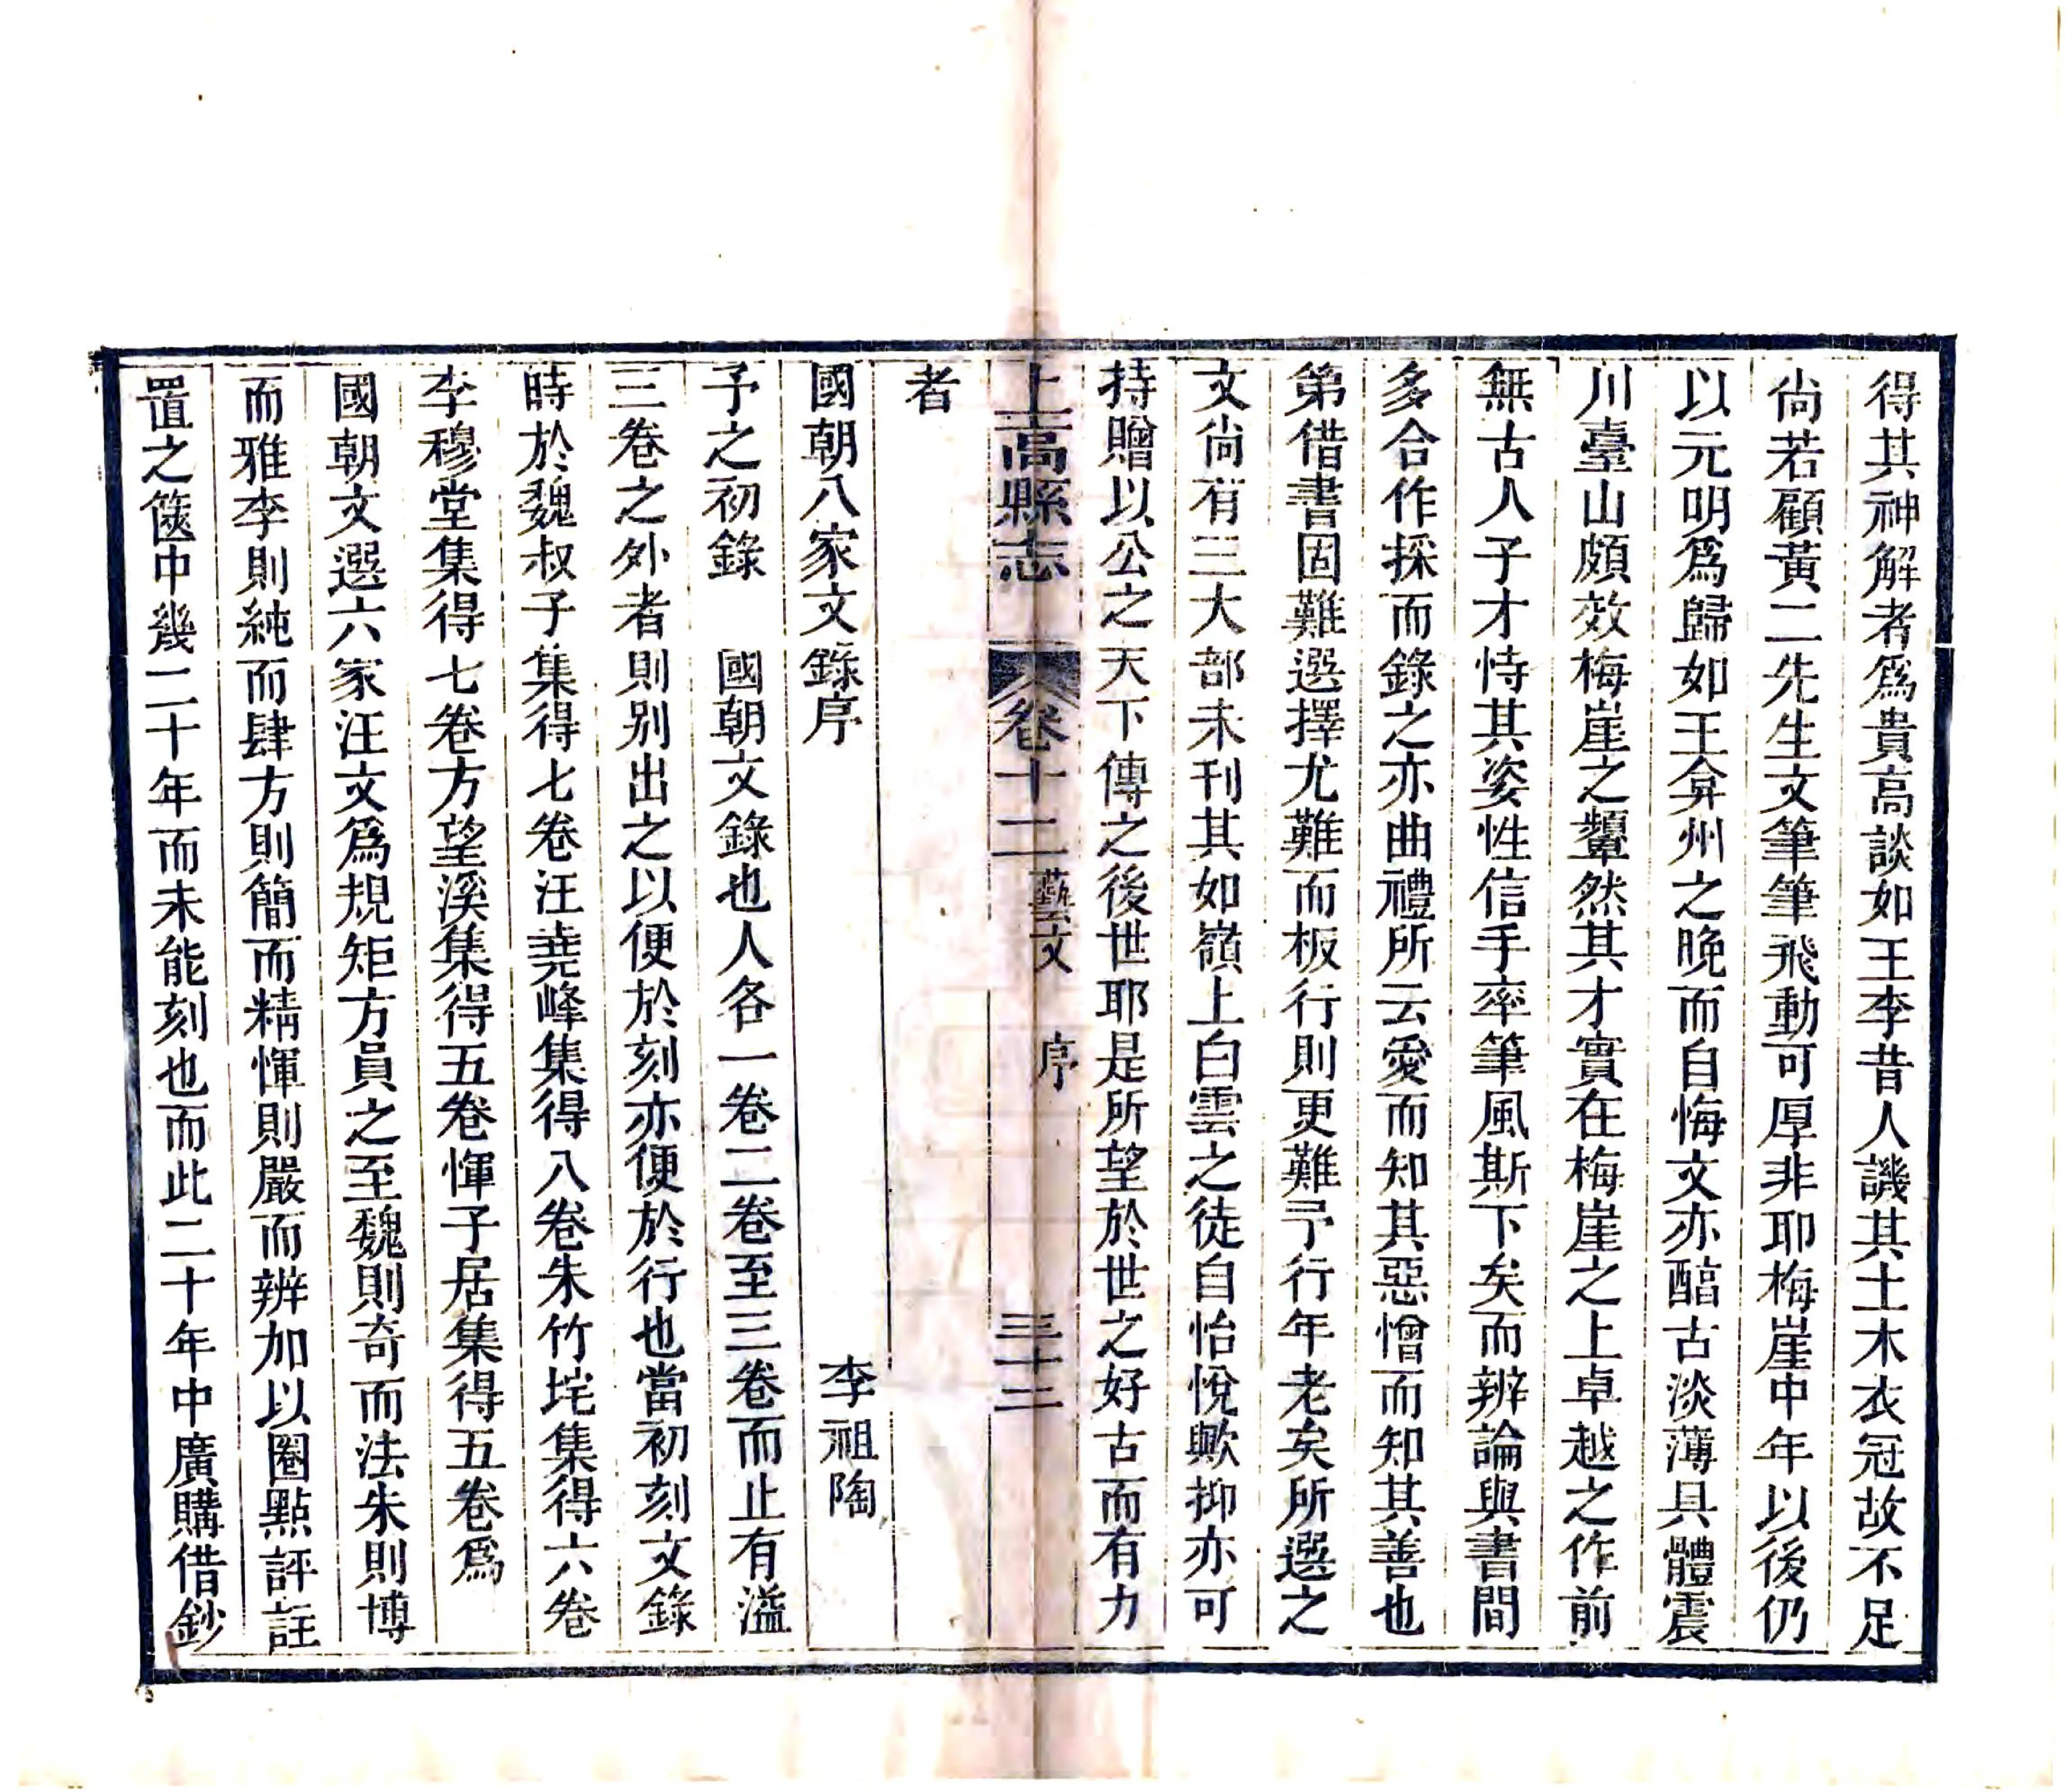 得其神解者爲貴高談如王李昔人譏其土木衣冠故不足
尙若顧黃二先生文筆筆飛動可厚非耶梅崖中年以後仍
以元明爲歸如王弇州之晚而自悔文亦醕古淡薄具體震
川臺山頗效梅崖之顰然其才實在梅崖之上卓越之作前
無古人子才恃其姿性信手率筆風斯下矣而辨論與書間
多合作採而錄之亦曲禮所云愛而知其惡憎而知其善也
第借書固難選擇尤難而板行則更難予行年老矣所選之
文尙有三大部未刊其如嶺上白雲之徒自怡悅歟抑亦可
持贈以公之天下傳之後世耶是所望於世之好古而有力
上高縣志 卷十二 藝文 序 三十三
者
國朝八家文錄序 李祖陶
予之初錄 國朝文錄也人各一卷二卷至三卷而止有溢
三卷之外者則別出之以便於刻亦便於行也當初刻文錄
時於魏叔子集得七卷汪堯峰集得八卷朱竹垞集得六卷
李穆堂集得七卷方望溪集得五卷惲子居集得五卷爲
國朝文選六家汪文爲規矩方員之至魏則奇而法朱則博
而雅李則純而肆方則簡而精惲則嚴而辨加以圈點評註
置之篋中幾二十年而未能刻也而此二十年中廣購借鈔